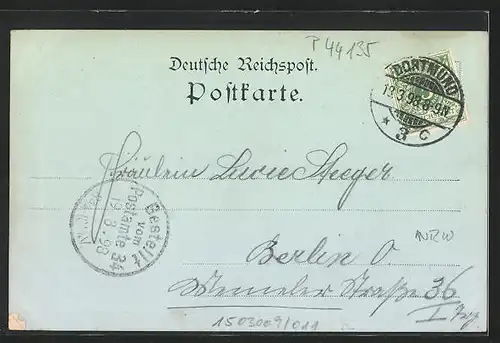 P 44135
Deutsche Reichspost.
Postkarte.
DORTMUND
18.3.98.8-9N
* 3 c
Fräulein Lucie Steeger
Bestellt
vom
Postamte 34
19.3.98
NRW
Berlin O.
Straße 36
I
1503009/011